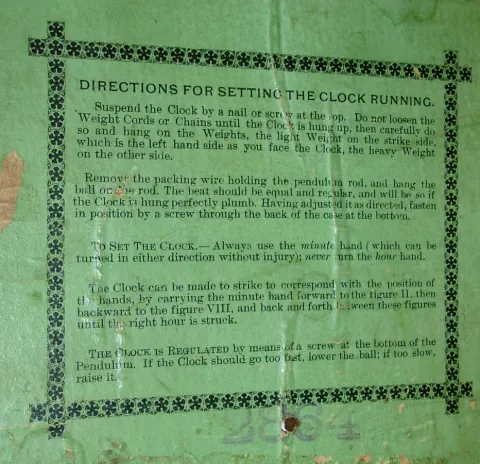 DIRECTIONS FOR SETTING THE CLOCK RUNNING.
Suspend the Clock by a nail or screw at the top. Do not loosen the
Weight Cords or Chains until the Clock is hung up, then carefully do
so and hang on the Weights, the light Weight on the strike side,
which is the left hand side as you face the Clock, the heavy Weight
on the other side.
Remove the packing wire holding the pendulum rod, and hang the
ball on the rod. The beat should be equal and regular, and will be so if
the Clock is hung perfectly plumb. Having adjusted it as directed, fasten
in position by a screw through the back of the case at the bottom.
TO SET THE CLOCK.— Always use the minute hand (which can be
turned in either direction without injury); never turn the hour hand.
The Clock can be made to strike to correspond with the position of
the hands, by carrying the minute hand forward to the figure II, then
backward to the figure VIII, and back and forth between these figures
until the right hour is struck.
THE CLOCK IS REGULATED by means of a screw at the bottom of the
Pendulum. If the Clock should go too fast, lower the ball; if too slow,
raise it.
2864